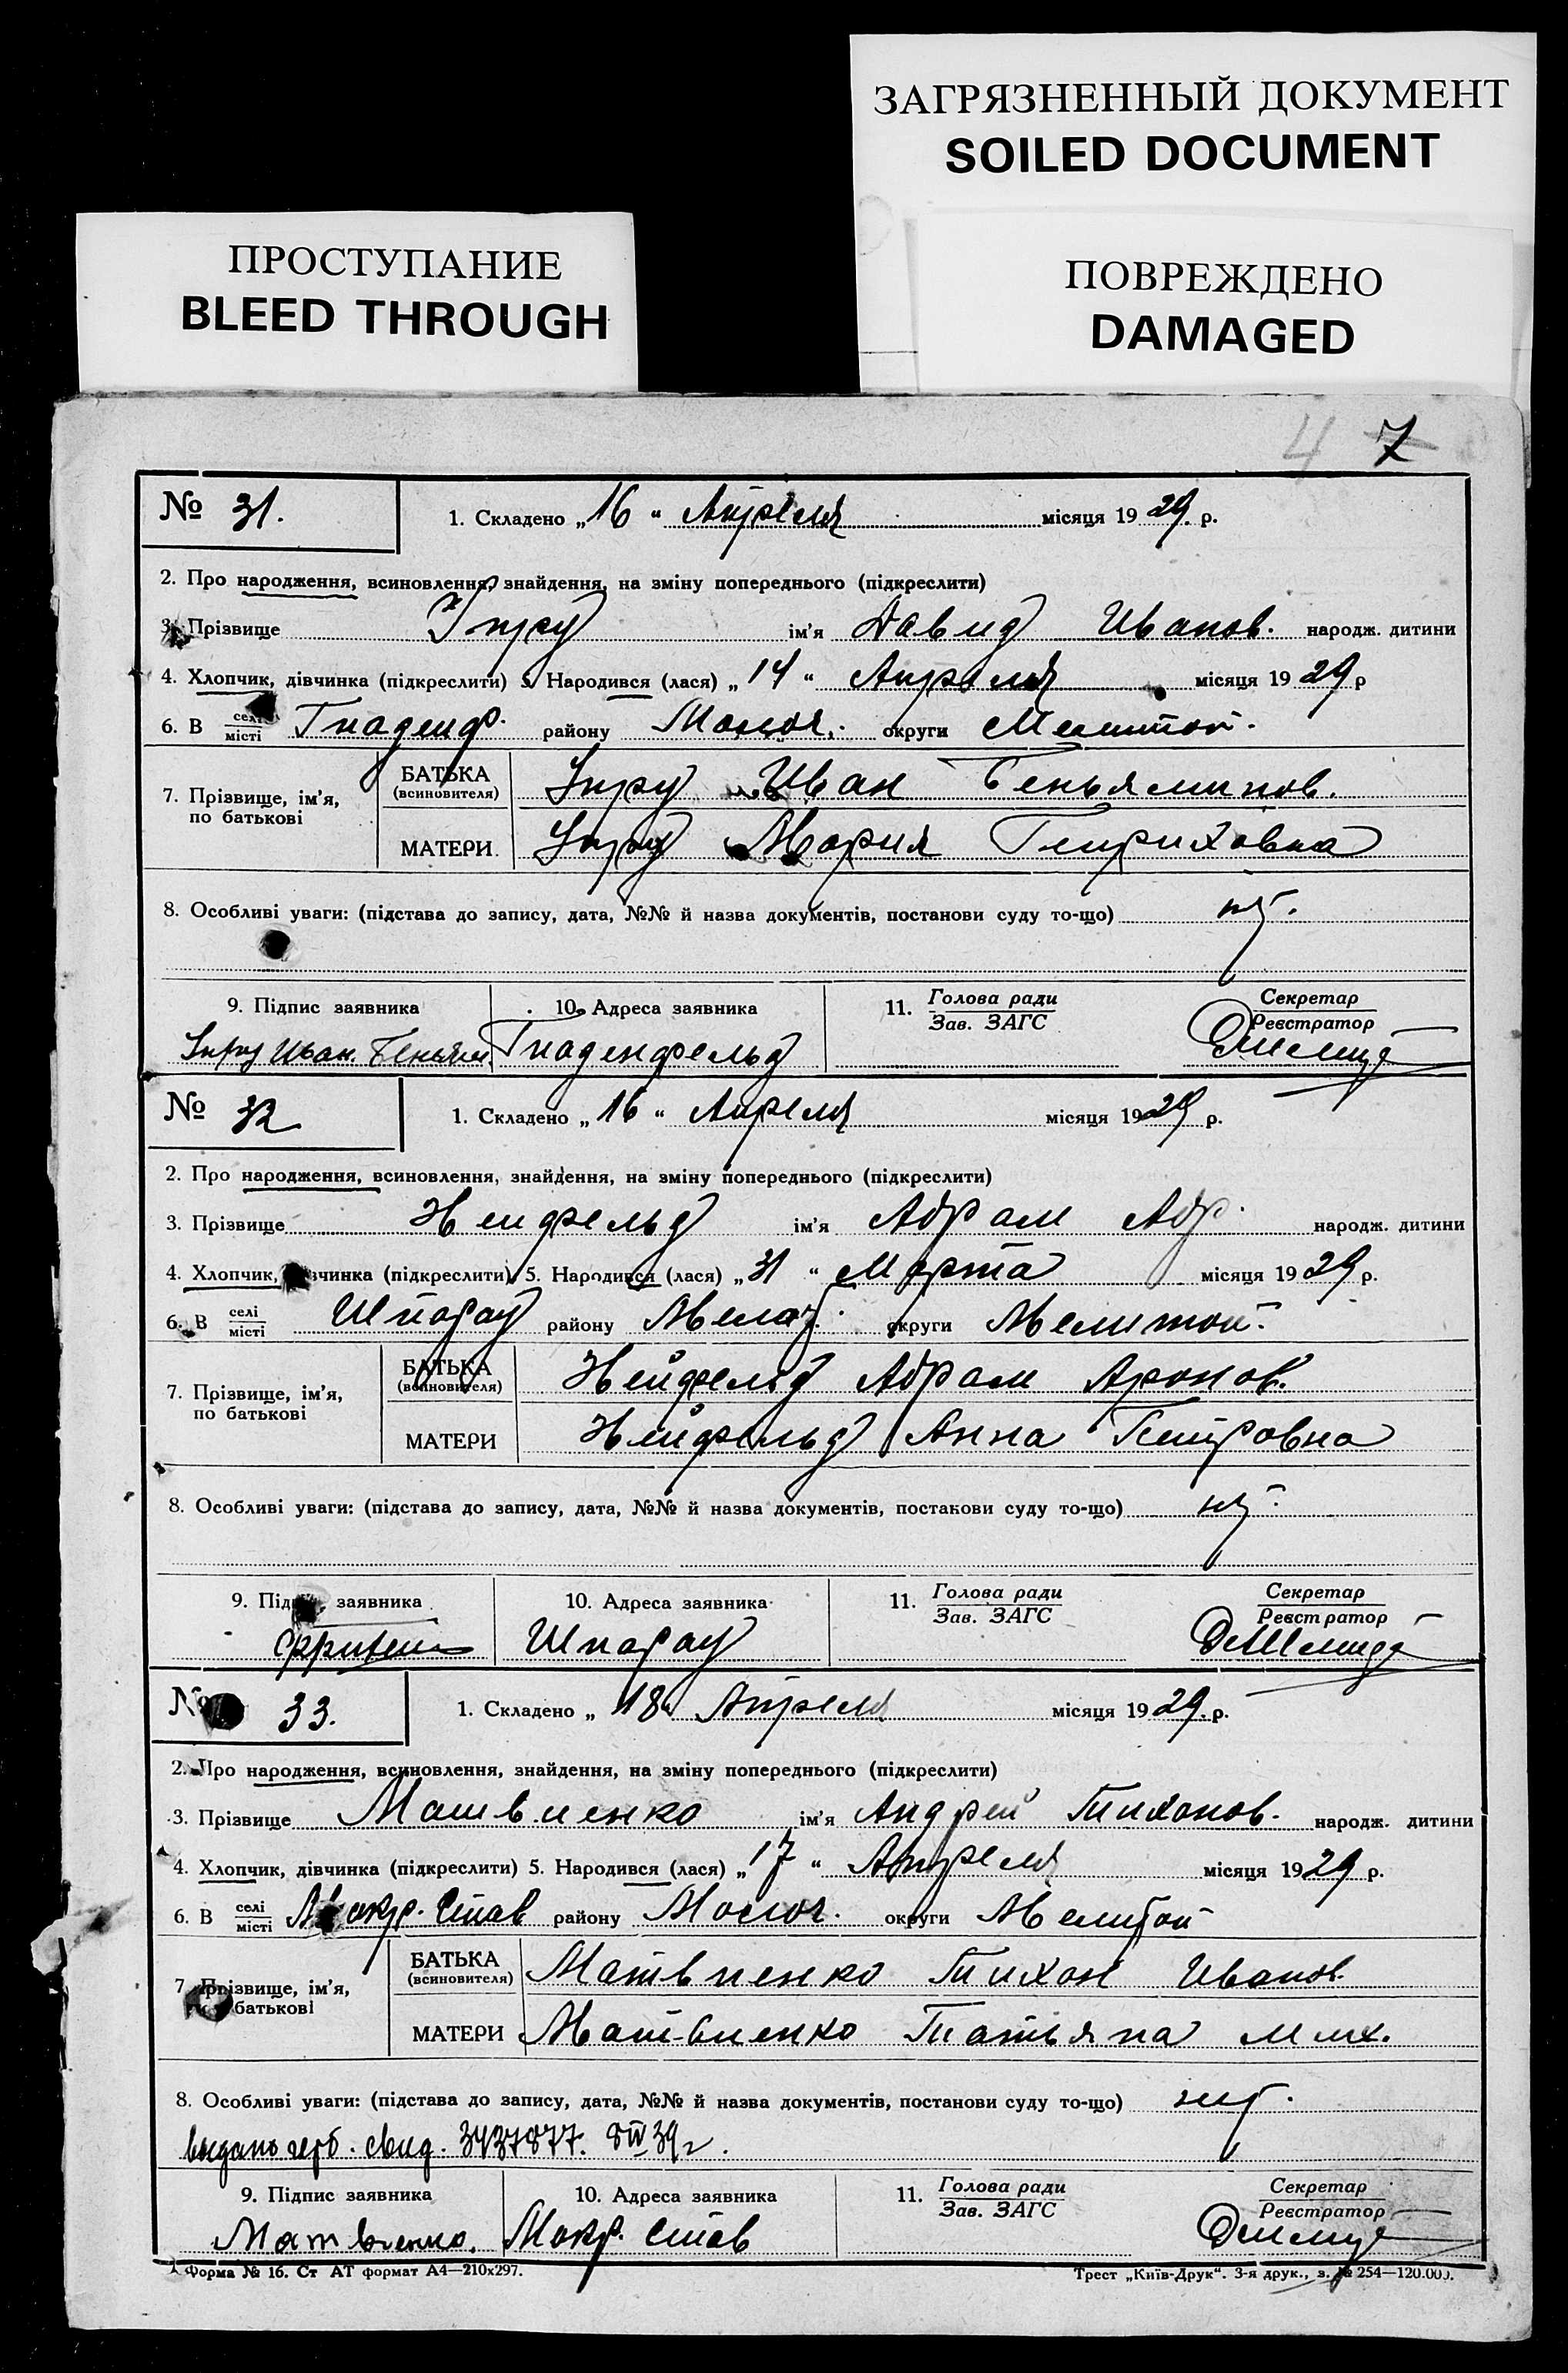 ЗАГРЯЗНЕННЫЙ ДОКУМЕНТ
SOILED DOCUMENT
ПРОСТУПАНИЕ
BLEED THROUGH
ПОВРЕЖДЕНО
DAMAGED
4 7
№ 31. 1. Складено „16“ Апреля місяця 1929. р.
2. Про народження, всиновлення, знайдення, на зміну попереднього (підкреслити)
3. Прізвище Унру ім'я Давид Иванов. народж. дитини
4. Хлопчик, дівчинка (підкреслити) 5. Народився (лася) „14“ Апреля місяця 1929 р
6. В селі місті Гнаденф. району Молоч. округи Мелитоп.
7. Прізвище, ім'я, по батькові БАТЬКА (всиновителя) Унру Иван Беньяминов.
МАТЕРИ Унру Мария Генриховна
8. Особливі уваги: (підстава до запису, дата, №№ й назва документів, постанови суду то-що)
9. Підпис заявника 10. Адреса заявника 11. Голова ради Зав. ЗАГС Секретар Реєстратор
Унру Иван. Беньям. Гнаденфельд
№ 32 1. Складено „16“ Апреля місяця 1929 р.
2. Про народження, всиновлення, знайдення, на зміну попереднього (підкреслити)
3. Прізвище Нейфельд ім'я Абрам Абр. народж. дитини
4. Хлопчик, дівчинка (підкреслити) 5. Народився (лася) „31“ Марта місяця 1929 р.
6. В селі місті Шпарау району округи Мелитоп.
7. Прізвище, ім'я, по батькові БАТЬКА (всиновителя) Нейфельд Абрам Аронов.
МАТЕРИ Нейфельд Анна Петровна
8. Особливі уваги: (підстава до запису, дата, №№ й назва документів, постанови суду то-що)
9. Підпис заявника 10. Адреса заявника 11. Голова ради Зав. ЗАГС Секретар Реєстратор
Шпарау
№ 33. 1. Складено „18“ Апреля місяця 1929. р.
2. Про народження, всиновлення, знайдення, на зміну попереднього (підкреслити)
3. Прізвище Матвиенко ім'я Андрей Тихонов. народж. дитини
4. Хлопчик, дівчинка (підкреслити) 5. Народився (лася) „17“ Апреля місяця 1929 р.
6. В селі місті Мокр. Став району Молоч. округи Мелитоп
7. Прізвище, ім'я, по батькові БАТЬКА (всиновителя) Матвиенко Тихон Иванов.
МАТЕРИ Матвиенко Татьяна Мих.
8. Особливі уваги: (підстава до запису, дата, №№ й назва документів, постанови суду то-що)
выдано герб. свид. 3437877. 39 г.
9. Підпис заявника 10. Адреса заявника 11. Голова ради Зав. ЗАГС Секретар Реєстратор
Матвиенко. Мокр. Став
Форма № 16. Ст АТ формат А4—210х297. Трест „Київ-Друк“. 3-я друк., з. № 254—120.000.